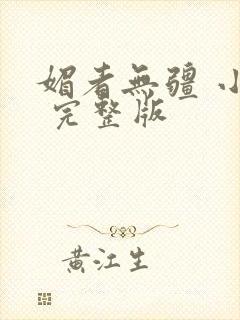 媚者無疆 小
完整版
黄江生